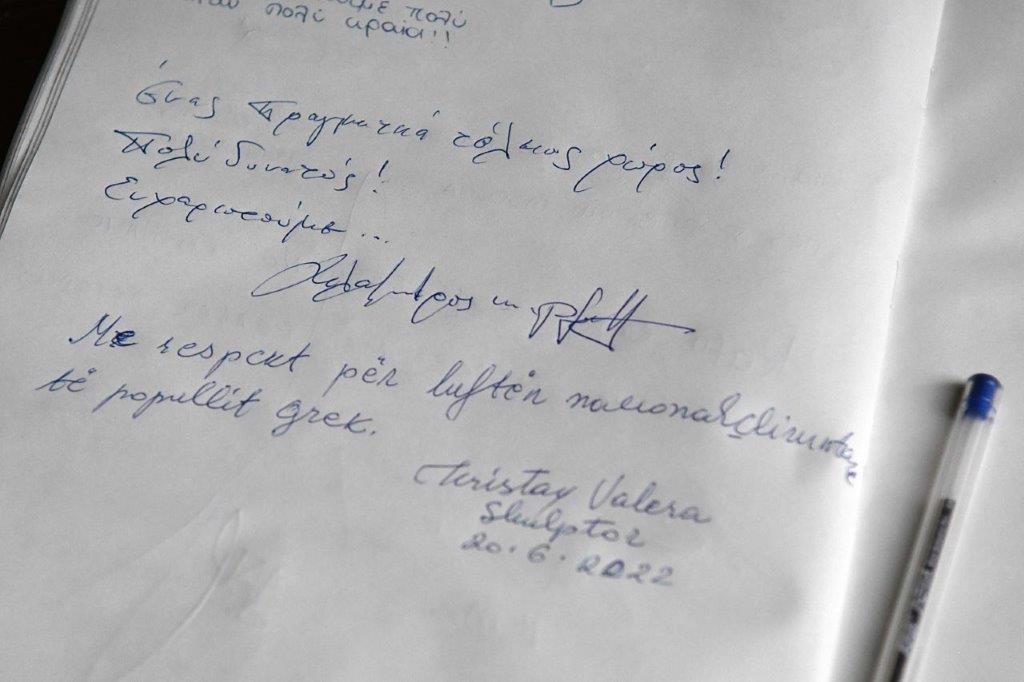 πολύ
πολύ ωραία!!
Ένας πραγματικά τόλμιος χώρος!
Πολύ δυνατός!
Ευχαριστούμε...
Me respekt për luftën nacionalçlirimtare
të popullit grek.
Kristaq Valera
Skulptor
20.6.2022